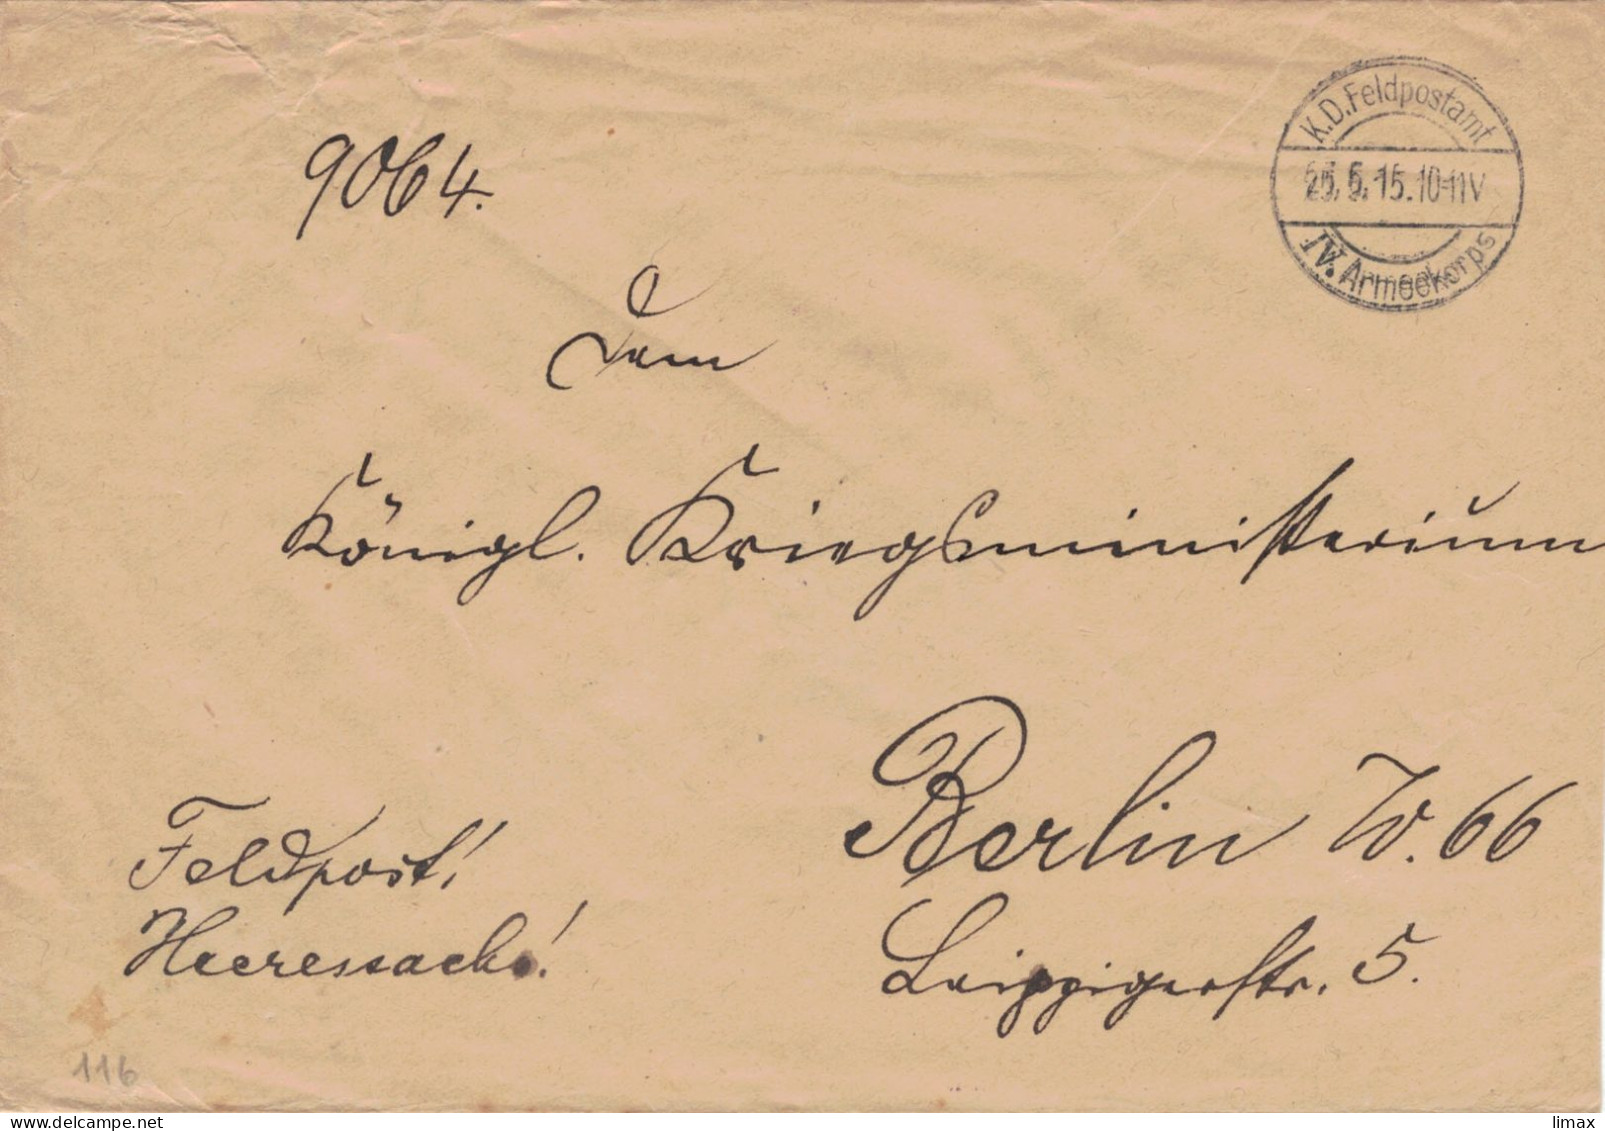 K.D.Feldpostamt
5.15.10-11V
IV. Armeekorps
9064.
Dem
Königl. Kriegsministerium
Berlin W. 66
Leipzigerstr. 5.
Feldpost!
Heeressache!
116
www.delcampe.net
limax